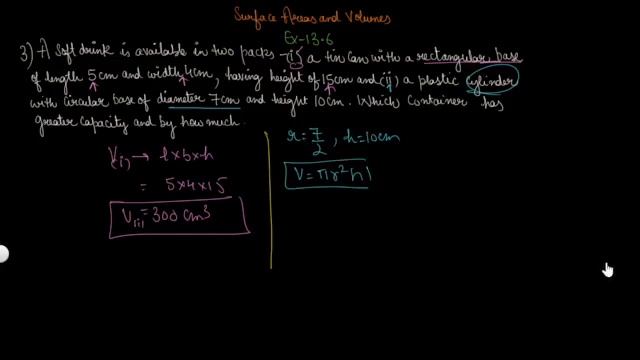 Surface Areas and Volumes
Ex-13.6
3) A Soft drink is available in two packs - (i) a tin Can with a rectangular base
of length 5cm and width 4cm, having height of 15cm and (ii) a plastic cylinder
with circular base of diameter 7cm and height 10cm. Which Container has
greater capacity and by how much.
V(i) → l×b×h
= 5×4×15
V(i) = 300 cm³
r = 7/2, h = 10cm
V = πr²h